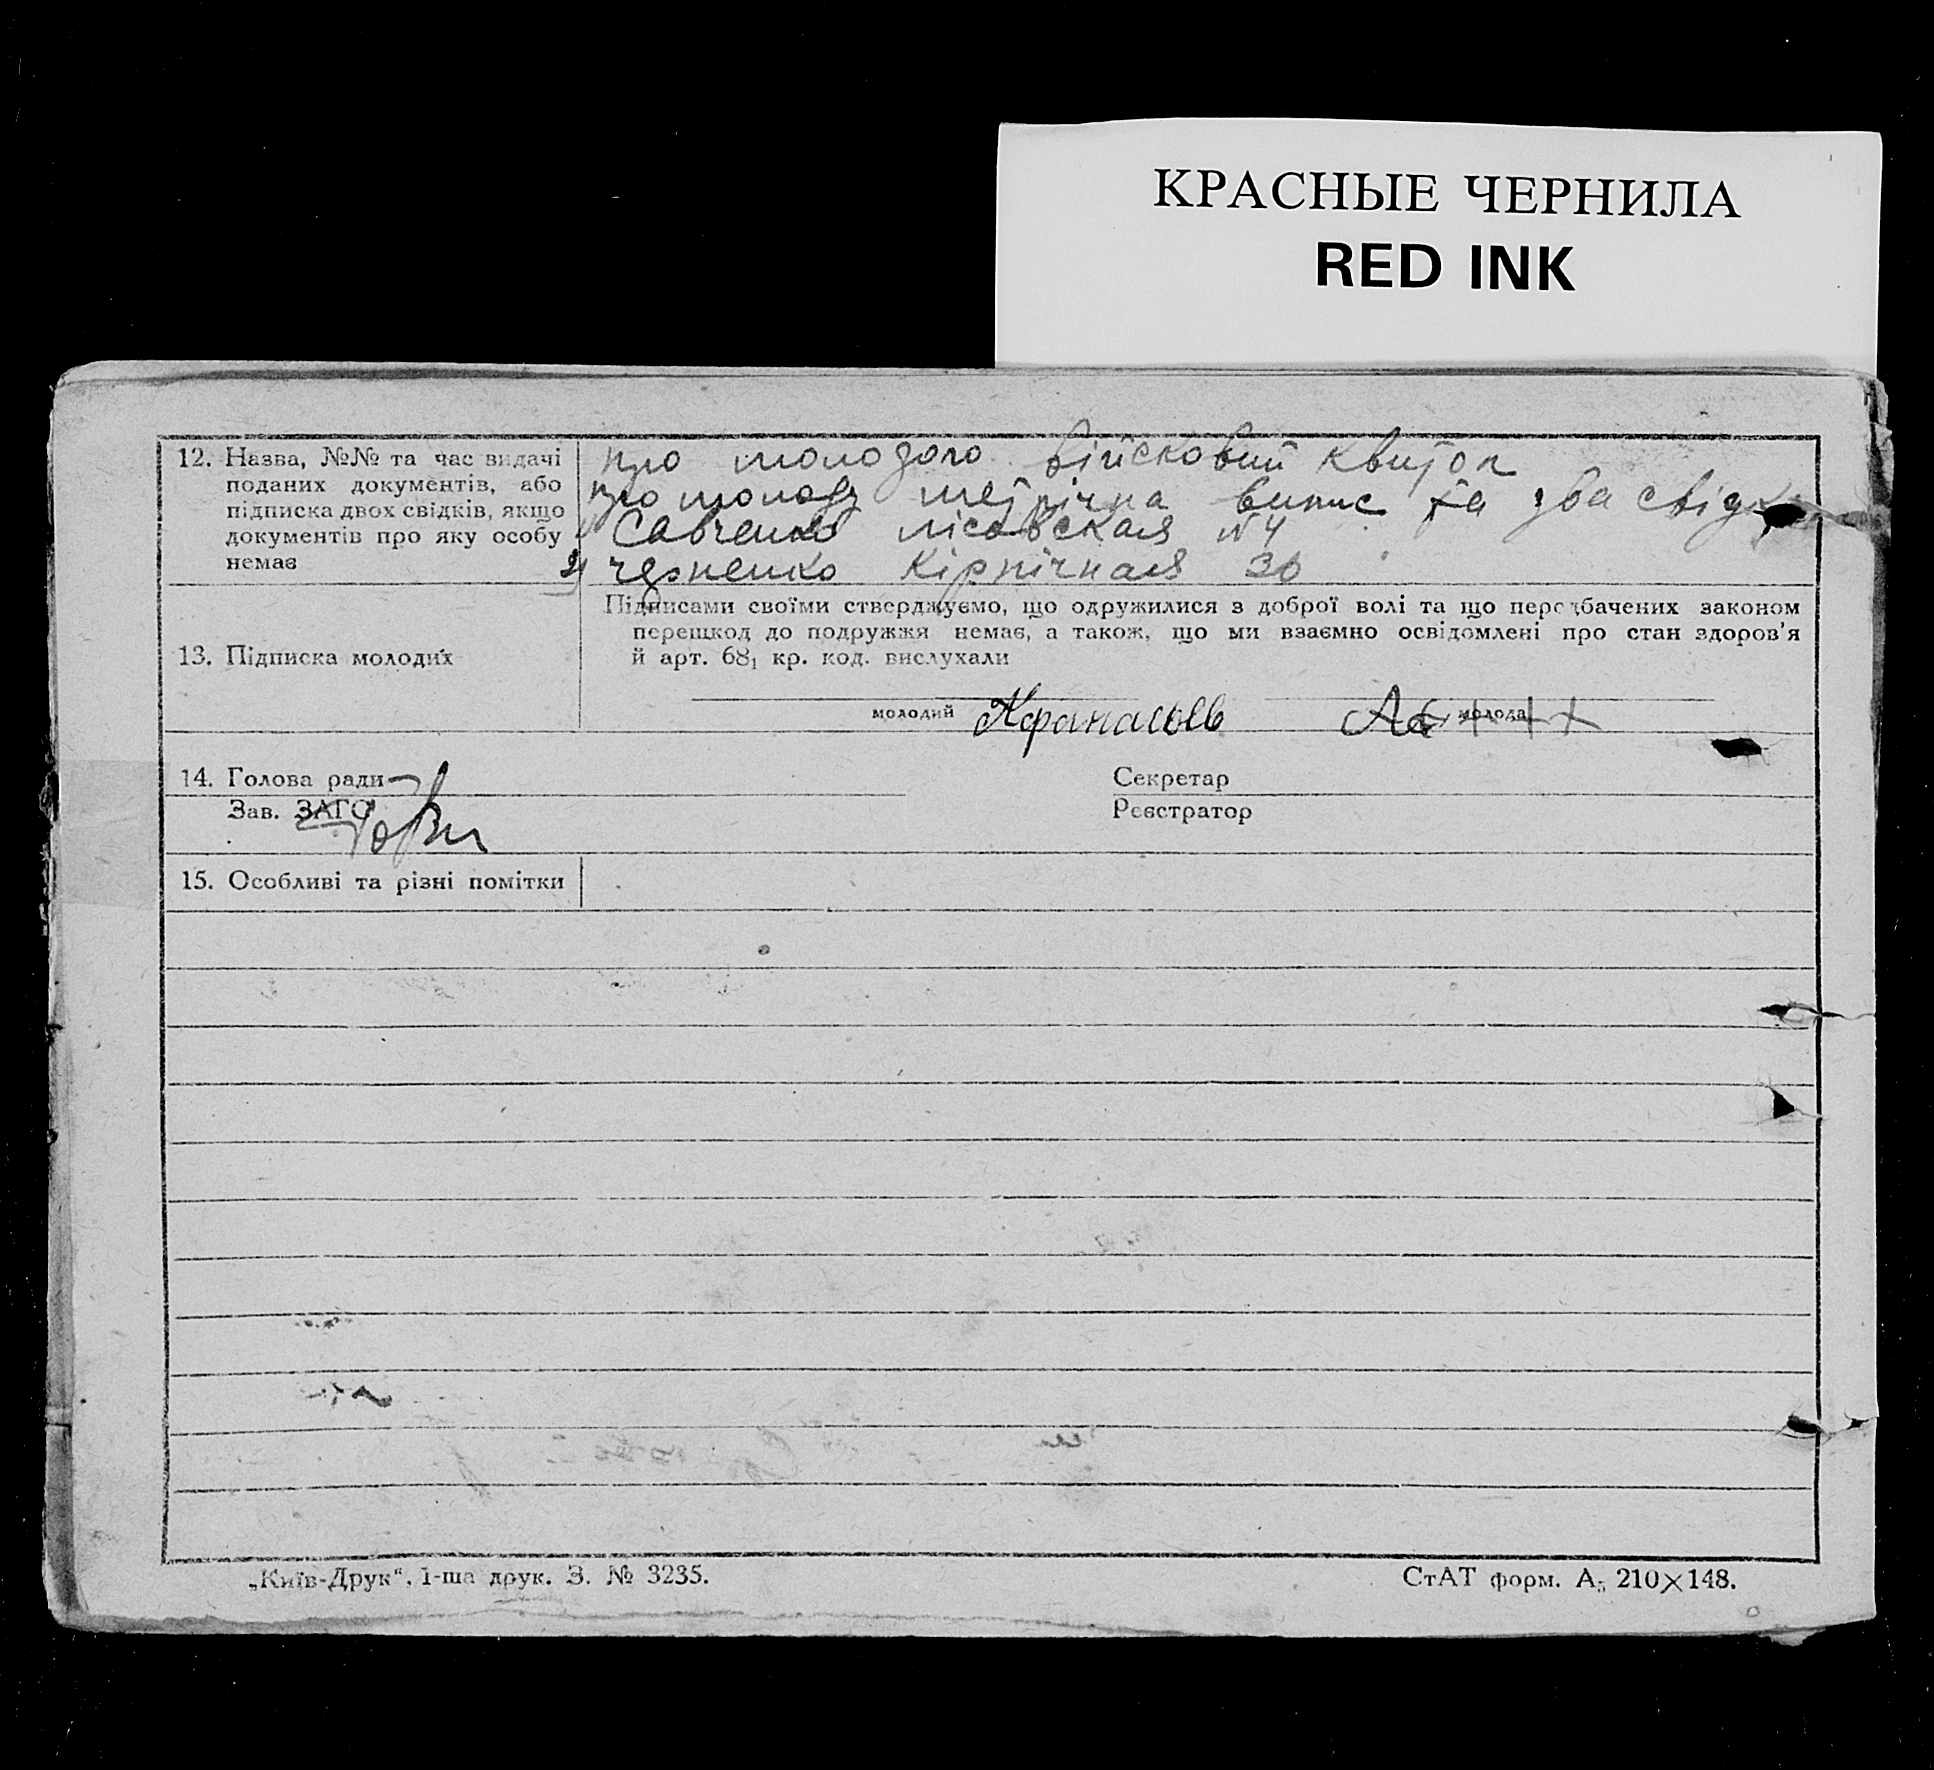 КРАСНЫЕ ЧЕРНИЛА
RED INK
12. Назва, №№ та час видачі
поданих документів, або
підписка двох свідків, якщо
документів про яку особу
немає
про молодого війсковий квиток
про молоду метрічна випис та два свідки
Савченко лісовская N 4
2) черненко Кірпічная 30
13. Підписка молодих
Підписами своїми стверджуємо, що одружилися з доброї волі та що передбачених законом
перешкод до подружжя немає, а також, що ми взаємно освідомлені про стан здоров'я
й арт. 68₁ кр. код. вислухали
молодий Афанасьев молода
14. Голова ради Секретар
Зав. ЗАГС Реєстратор
15. Особливі та різні помітки
„Київ-Друк“, 1-ша друк. З. № 3235. СтАТ форм. А₅ 210×148.